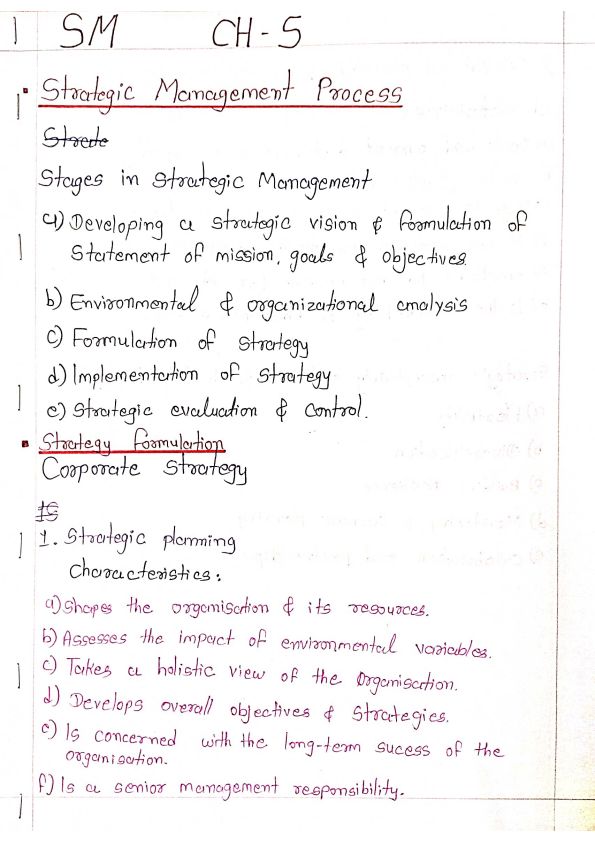 SM CH-5
Strategic Management Process
Strate
Stages in Strategic Management
a) Developing a strategic vision & formulation of
Statement of mission, goals & objectives
b) Environmental & organizational analysis
c) Formulation of strategy
d) Implementation of strategy
e) Strategic evaluation & control.
Strategy formulation
Corporate Strategy
1. Strategic planning
Characteristics:
a) Shapes the organisation & its resources.
b) Assesses the impact of environmental variables.
c) Takes a holistic view of the organisation.
d) Develops overall objectives & strategies.
e) Is concerned with the long-term sucess of the
organisation.
f) Is a senior management responsibility.